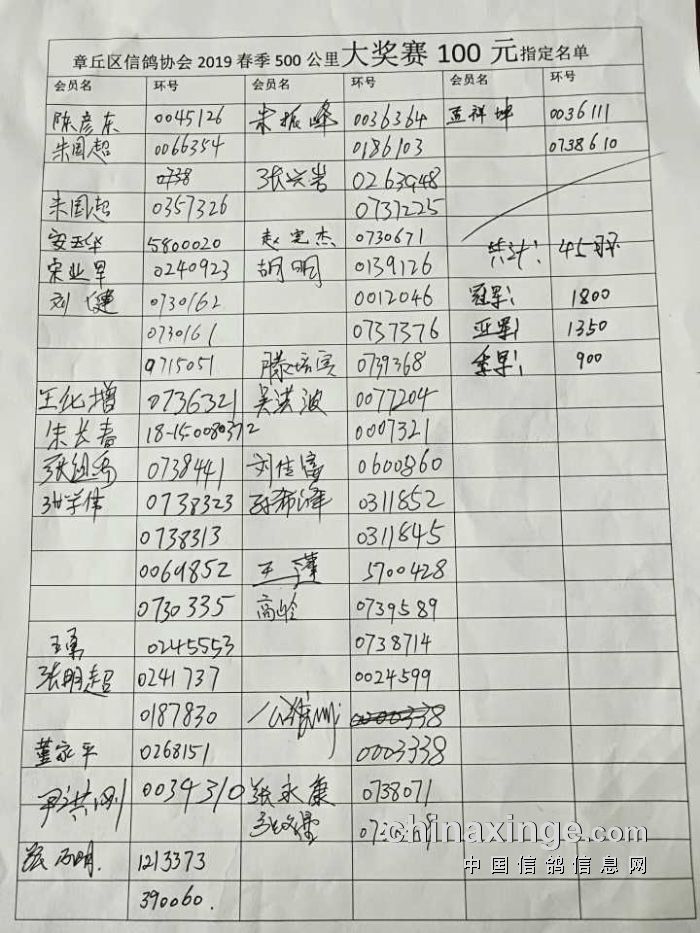 章丘区信鸽协会 2019 春季 500 公里大奖赛 100 元指定名单
会员名 环号 会员名 环号 会员名 环号
陈彦东 0045126 宋振峰 0036364 孟祥坤 0036111
朱国超 0066354 0186103 0738610
0738 张兴岩 0263948
朱国超 0357326 0737225
安玉华 5800020 赵宪杰 0730671 共计:45羽
宋业旱 0240923 胡明 0139126
刘健 0730162 0012046 冠军: 1800
0730161 0737376 亚军: 1350
9715051 0739368 季军: 900
王化增 0736321 吴洪波 0077204
朱长春 18-150080372 0007321
张组 0738441 刘佳富 0600860
张学伟 0738323 孙希泽 0311852
0738313 0311845
0069852 王 5700428
0730335 高岭 0739589
王勇 0245553 0738714
张明超 0241737 0024599
0187830 0000338
董家平 0268151 0003338
尹洪刚 0034310 张永康 0738071
张文
张 明. 1213373
390060.
chinaxinge.com
中国信鸽信息网